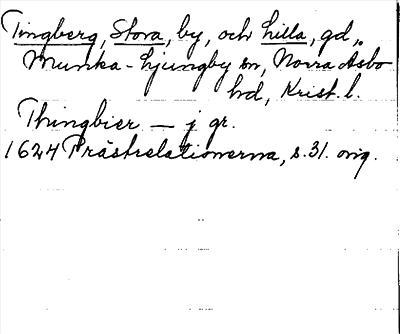 Tingberg, Stora, by, och Lilla, gd,,
Munka-Ljungby sn, Norra Åsbo
hd, Krist. l.
Thingbier — j gr.
1624 Prästrelationerna, s. 31. orig.